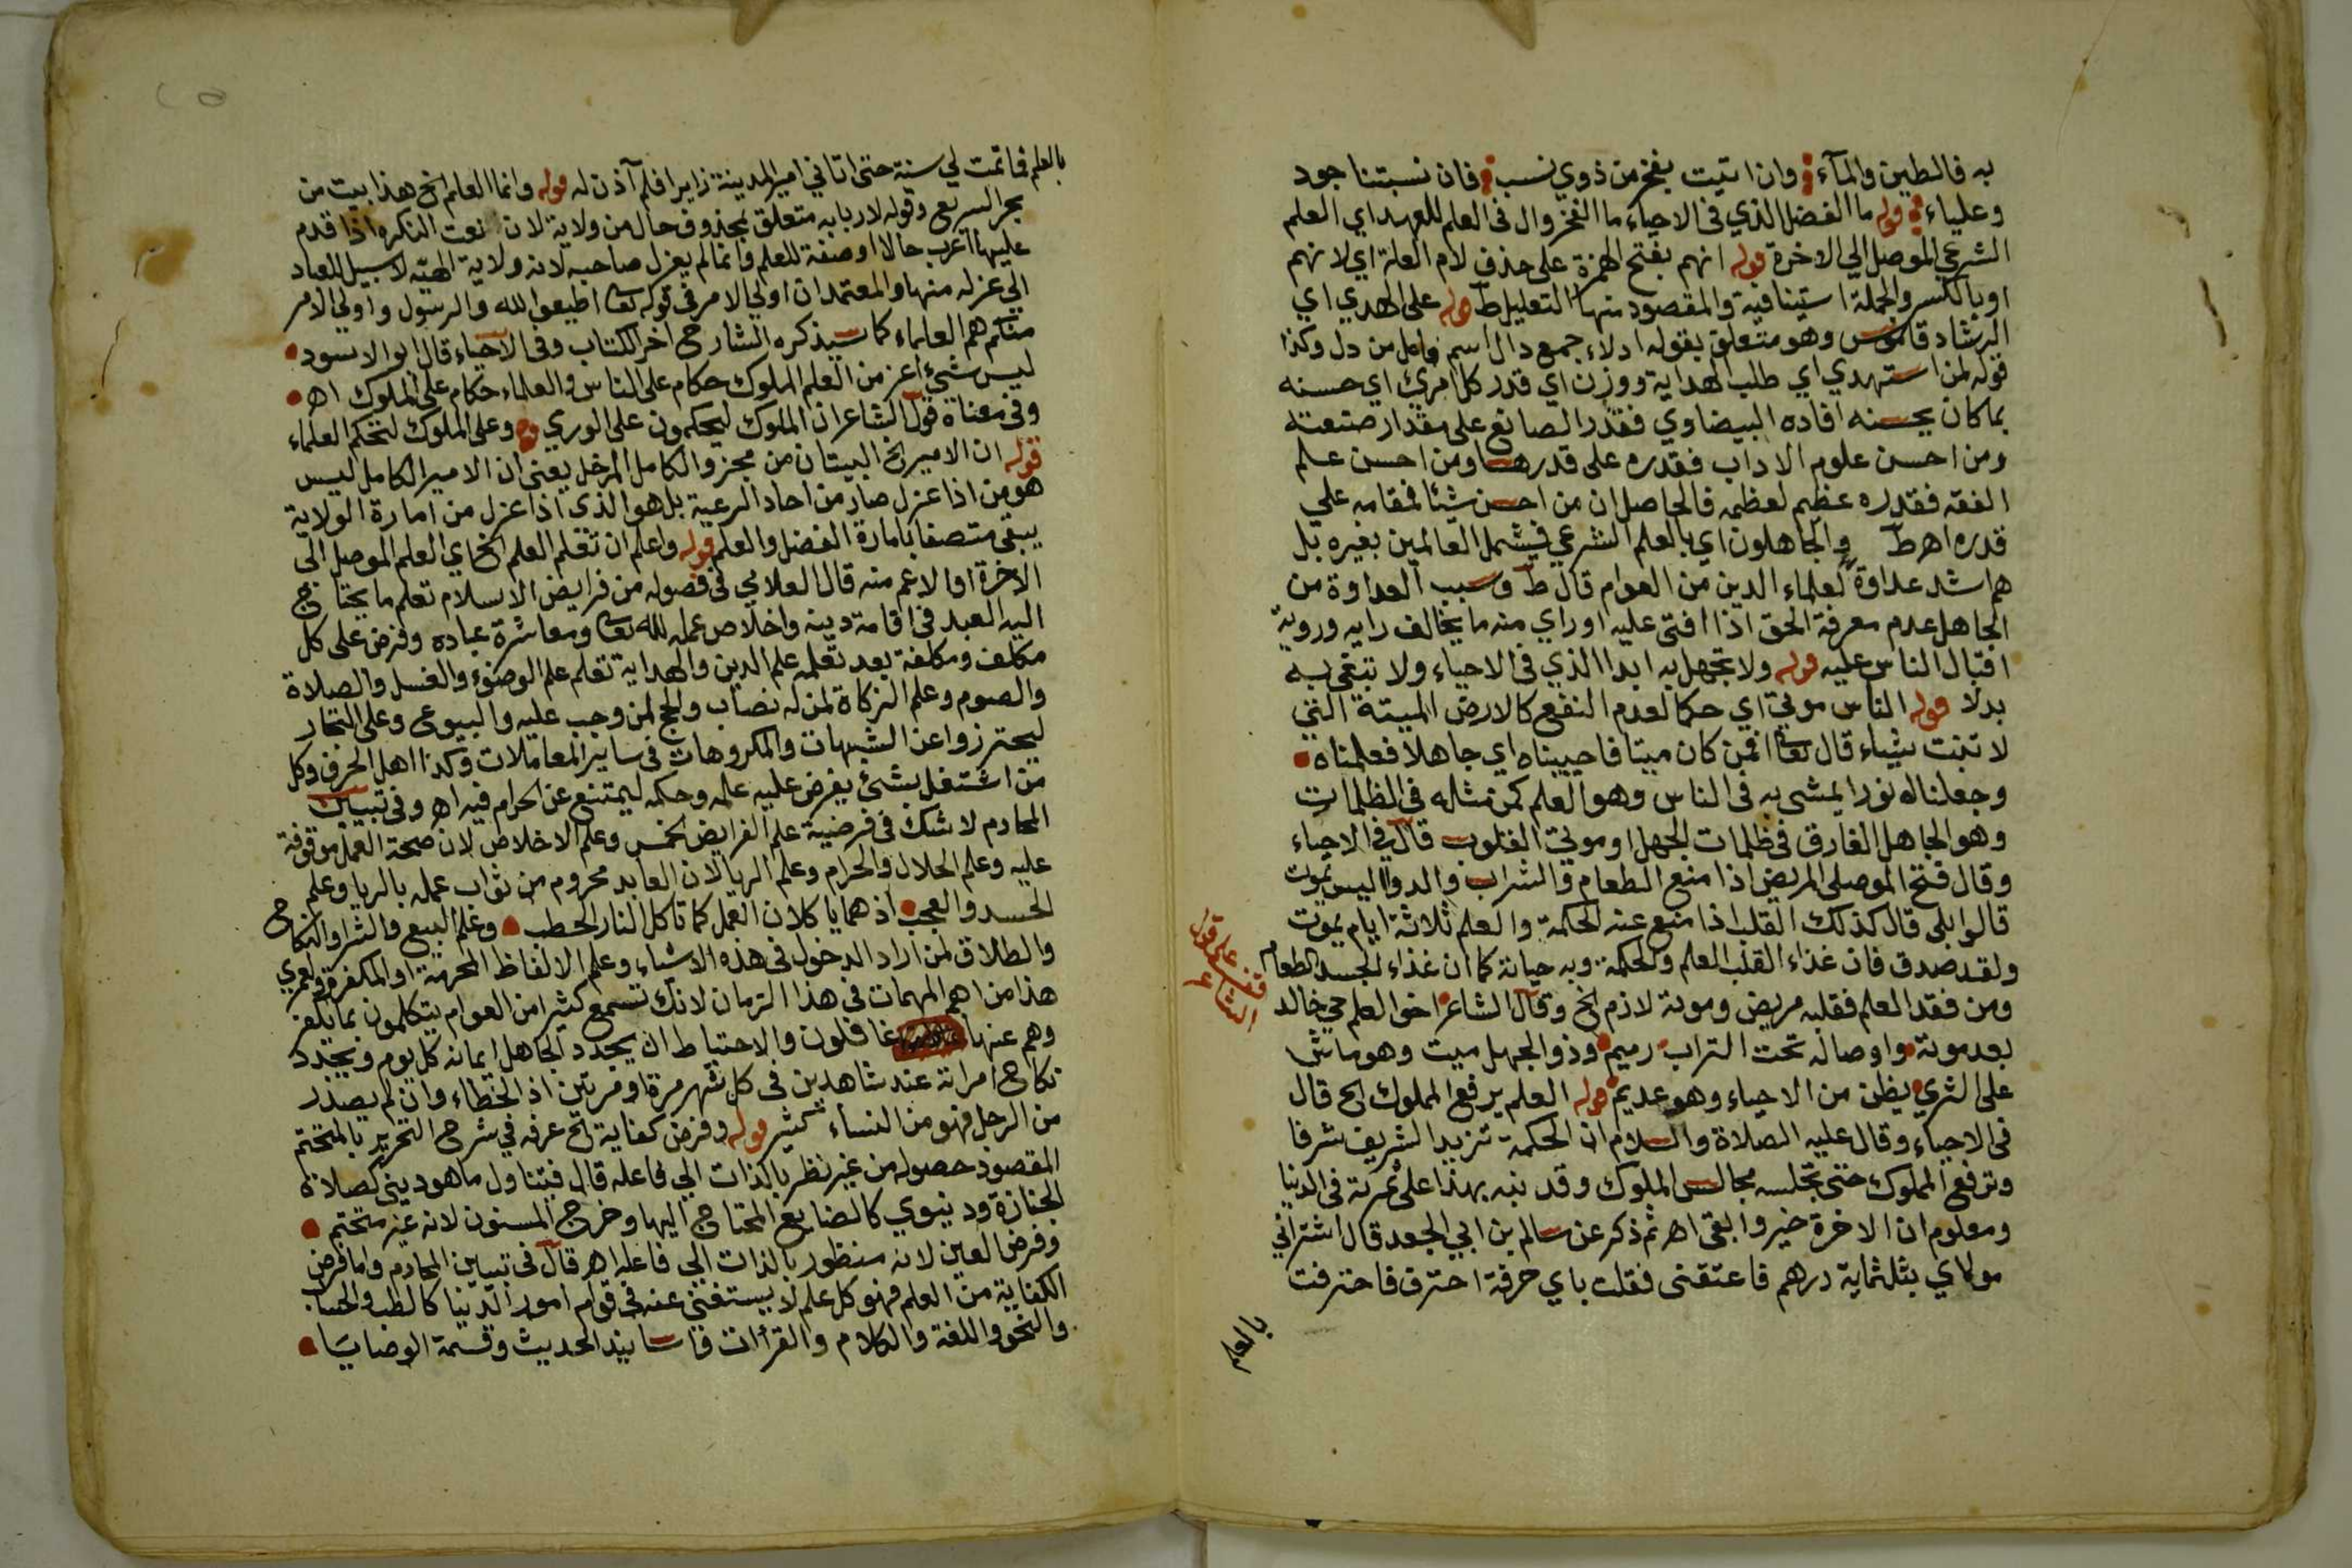 به فالطين والمآء وان اتيت بفخر من ذوي نسب فان نسبتنا جود
وعلياء قوله ما الفضل الذي في الاحياء ما الفخر وال في العلم للعهد اي العلم
الشرعي الموصل الي الاخرة قوله انهم بفتح الهمزة على حذف لام العلة اي لانهم
او بالكسر والجملة استينافية والمقصود منها التعليل ط قوله على الهدي اي
الرشاد قاموس وهو متعلق بقوله ادلاء جمع دال اسم فاعل من دل وكذا
قوله لمن استهدي اي طلب الهداية ووزن اي قدر كل امرئ اي حسنه
بما كان يحسنه افاده البيضاوي فقدر الصانع على مقدار صنعته
ومن احسن علوم الاداب فقدره على قدرها ومن احسن علم
الفقه فقدره عظيم لعظمه فالحاصل ان من احسن شئا فمقامه علي
قدره اهـ ط والجاهلون اي بالعلم الشرعي فيشمل العالمين بغيره بل
هم اشد عداوة لعلماء الدين من العوام قال ط وسبب العداوة من
الجاهل عدم معرفة الحق اذا افتى عليه او راي منه ما يخالف رايه وروية
اقبال الناس عليه قوله ولا تجهل به ابدا الذي في الاحياء ولا تبتغي به
بدلا قوله الناس موتي اي حكما لعدم النفع كالارض الميتة التي
لا تنبت شياء قال تعا افمن كان ميتا فاحييناه اي جاهلا فعلمناه
وجعلنا له نورا يمشي به في الناس وهو العلم كمن مثله في الظلمات
وهو الجاهل الغارق في ظلمات الجهل او موتي القلوب قال في الاحياء
وقال فتح الموصلي المريض اذا منع الطعام والشراب والدوا اليس يموت
قالوا بلى قال كذلك القلب اذا منع عنه الحكمة والعلم ثلاثة ايام يموت
ولقد صدق فان غذاء القلب العلم والحكمة وبه حياته كما ان غذاء الجسد الطعام
ومن فقد العلم فقلبه مريض وموته لازم الخ وقال الشاعر اخو العلم حي خالد
بعد موته واوصاله تحت التراب رميم وذو الجهل ميت وهو ماش
على الثري يظن من الاحياء وهو عديم قوله العلم يرفع المملوك الخ قال
في الاحياء وقال عليه الصلاة والسلام ان الحكمة تزيد الشريف شرفا
وترفع المملوك حتى تجلسه مجالس الملوك وقد نبه بهذا على ثمرته في الدنيا
ومعلوم ان الاخرة خير وابقى اهـ ثم ذكر عن سالم بن ابي الجعد قال اشتراني
مولاي بثلثماية درهم فاعتقني فقلت باي حرفة احترف فاحترفت
بالعلم
قف على قول
الشاعر
بالعلم فما تمت لي سنة حتى اتاني امير المدينة زايرا فلم آذن له قوله وانما العلم الخ هذا بيت من
بحر السريع وقوله لاربابه متعلق بمحذوف حال من ولاية لان نعت النكره اذا قدم
عليها اعرب حالا او صفة للعلم وانما لم يعزل صاحبه لانه ولاية الهية لا سبيل للعباد
الي عزله منها والمعتمد ان اولي الامر في قوله تعا اطيعوا لله والرسول واولي الامر
منكم هم العلماء كما سيذكره الشارح اخر الكتاب وفي الاحياء قال ابوا الاسود
ليس شيئ اعز من العلم الملوك حكام على الناس والعلماء حكام على الملوك اهـ
وفي معناه قول الشاعر ان الملوك ليحكمون على الوري وعلى الملوك لتحكم العلماء
قوله ان الامير الخ البيتان من مجزو الكامل المرفل يعني ان الامير الكامل ليس
هو من اذا عزل صار من احاد الرعية بل هو الذي اذا عزل من امارة الولاية
يبقى متصفا بامارة الفضل والعلم قوله واعلم ان تعلم العلم الخ اي العلم الموصل الى
الاخرة او الاعم منه قال العلامي في فصوله من فرايض الاسلام تعلم ما يحتاج
اليه العبد في اقامة دينه واخلاص عمله لله تعا ومعاشرة عباده وفرض على كل
مكلف ومكلفة بعد تعلمه علم الدين والهداية تعلم علم الوضوء والغسل والصلاة
والصوم وعلم الزكاة لمن له نصاب والحج لمن وجب عليه والبيوع وعلى التجار
ليحترزوا عن الشبهات والمكروهات في ساير المعاملات وكذا اهل الحرف وكل
من اشتغل بشئ يفرض عليه علمه وحكمه ليمتنع عن الحرام فيه اهـ وفي تبيين
المحارم لا شك في فرضية علم الفرايض الخمس وعلم الاخلاص لان صحة العمل موقوفة
عليه وعلم الحلال والحرام وعلم الريا لان العابد محروم من ثواب عمله بالريا وعلم
الحسد والعجب اذ هما ياكلان العمل كما تاكل النار الحطب وعلم البيع والشرا والنكاح
والطلاق لمن اراد الدخول في هذه الاشياء وعلم الالفاظ المحرمة او المكفرة ولعمري
هذا من اهم المهمات في هذا الزمان لانك تسمع كثيرا من العوام يتكلمون بما يكفر
وهم عنها غافلون والاحتياط ان يجدد الجاهل ايمانه كل يوم ويجدد
نكاح امراته عند شاهدين في كل شهر مرة او مرتين اذ الخطاء وان لم يصدر
من الرجل فهو من النساء كثير قوله وفرض كفاية الخ عرفه في شرح التحرير بالمتحتم
المقصود حصوله من غير نظر بالذات الي فاعله قال فيتناول ما هو ديني كصلاة
الجنازة ودنيوي كالصنايع المحتاج اليها وخرج المسنون لانه غير متحتم
وفرض العين لانه منظور بالذات الي فاعله اهـ قال في تبيين المحارم واما فرض
الكفاية من العلم فهو كل علم لا يستغني عنه في قوام امور الدنيا كالطب والحساب
والنحو واللغة والكلام والقراات واسانيد الحديث وقسمة الوصايا